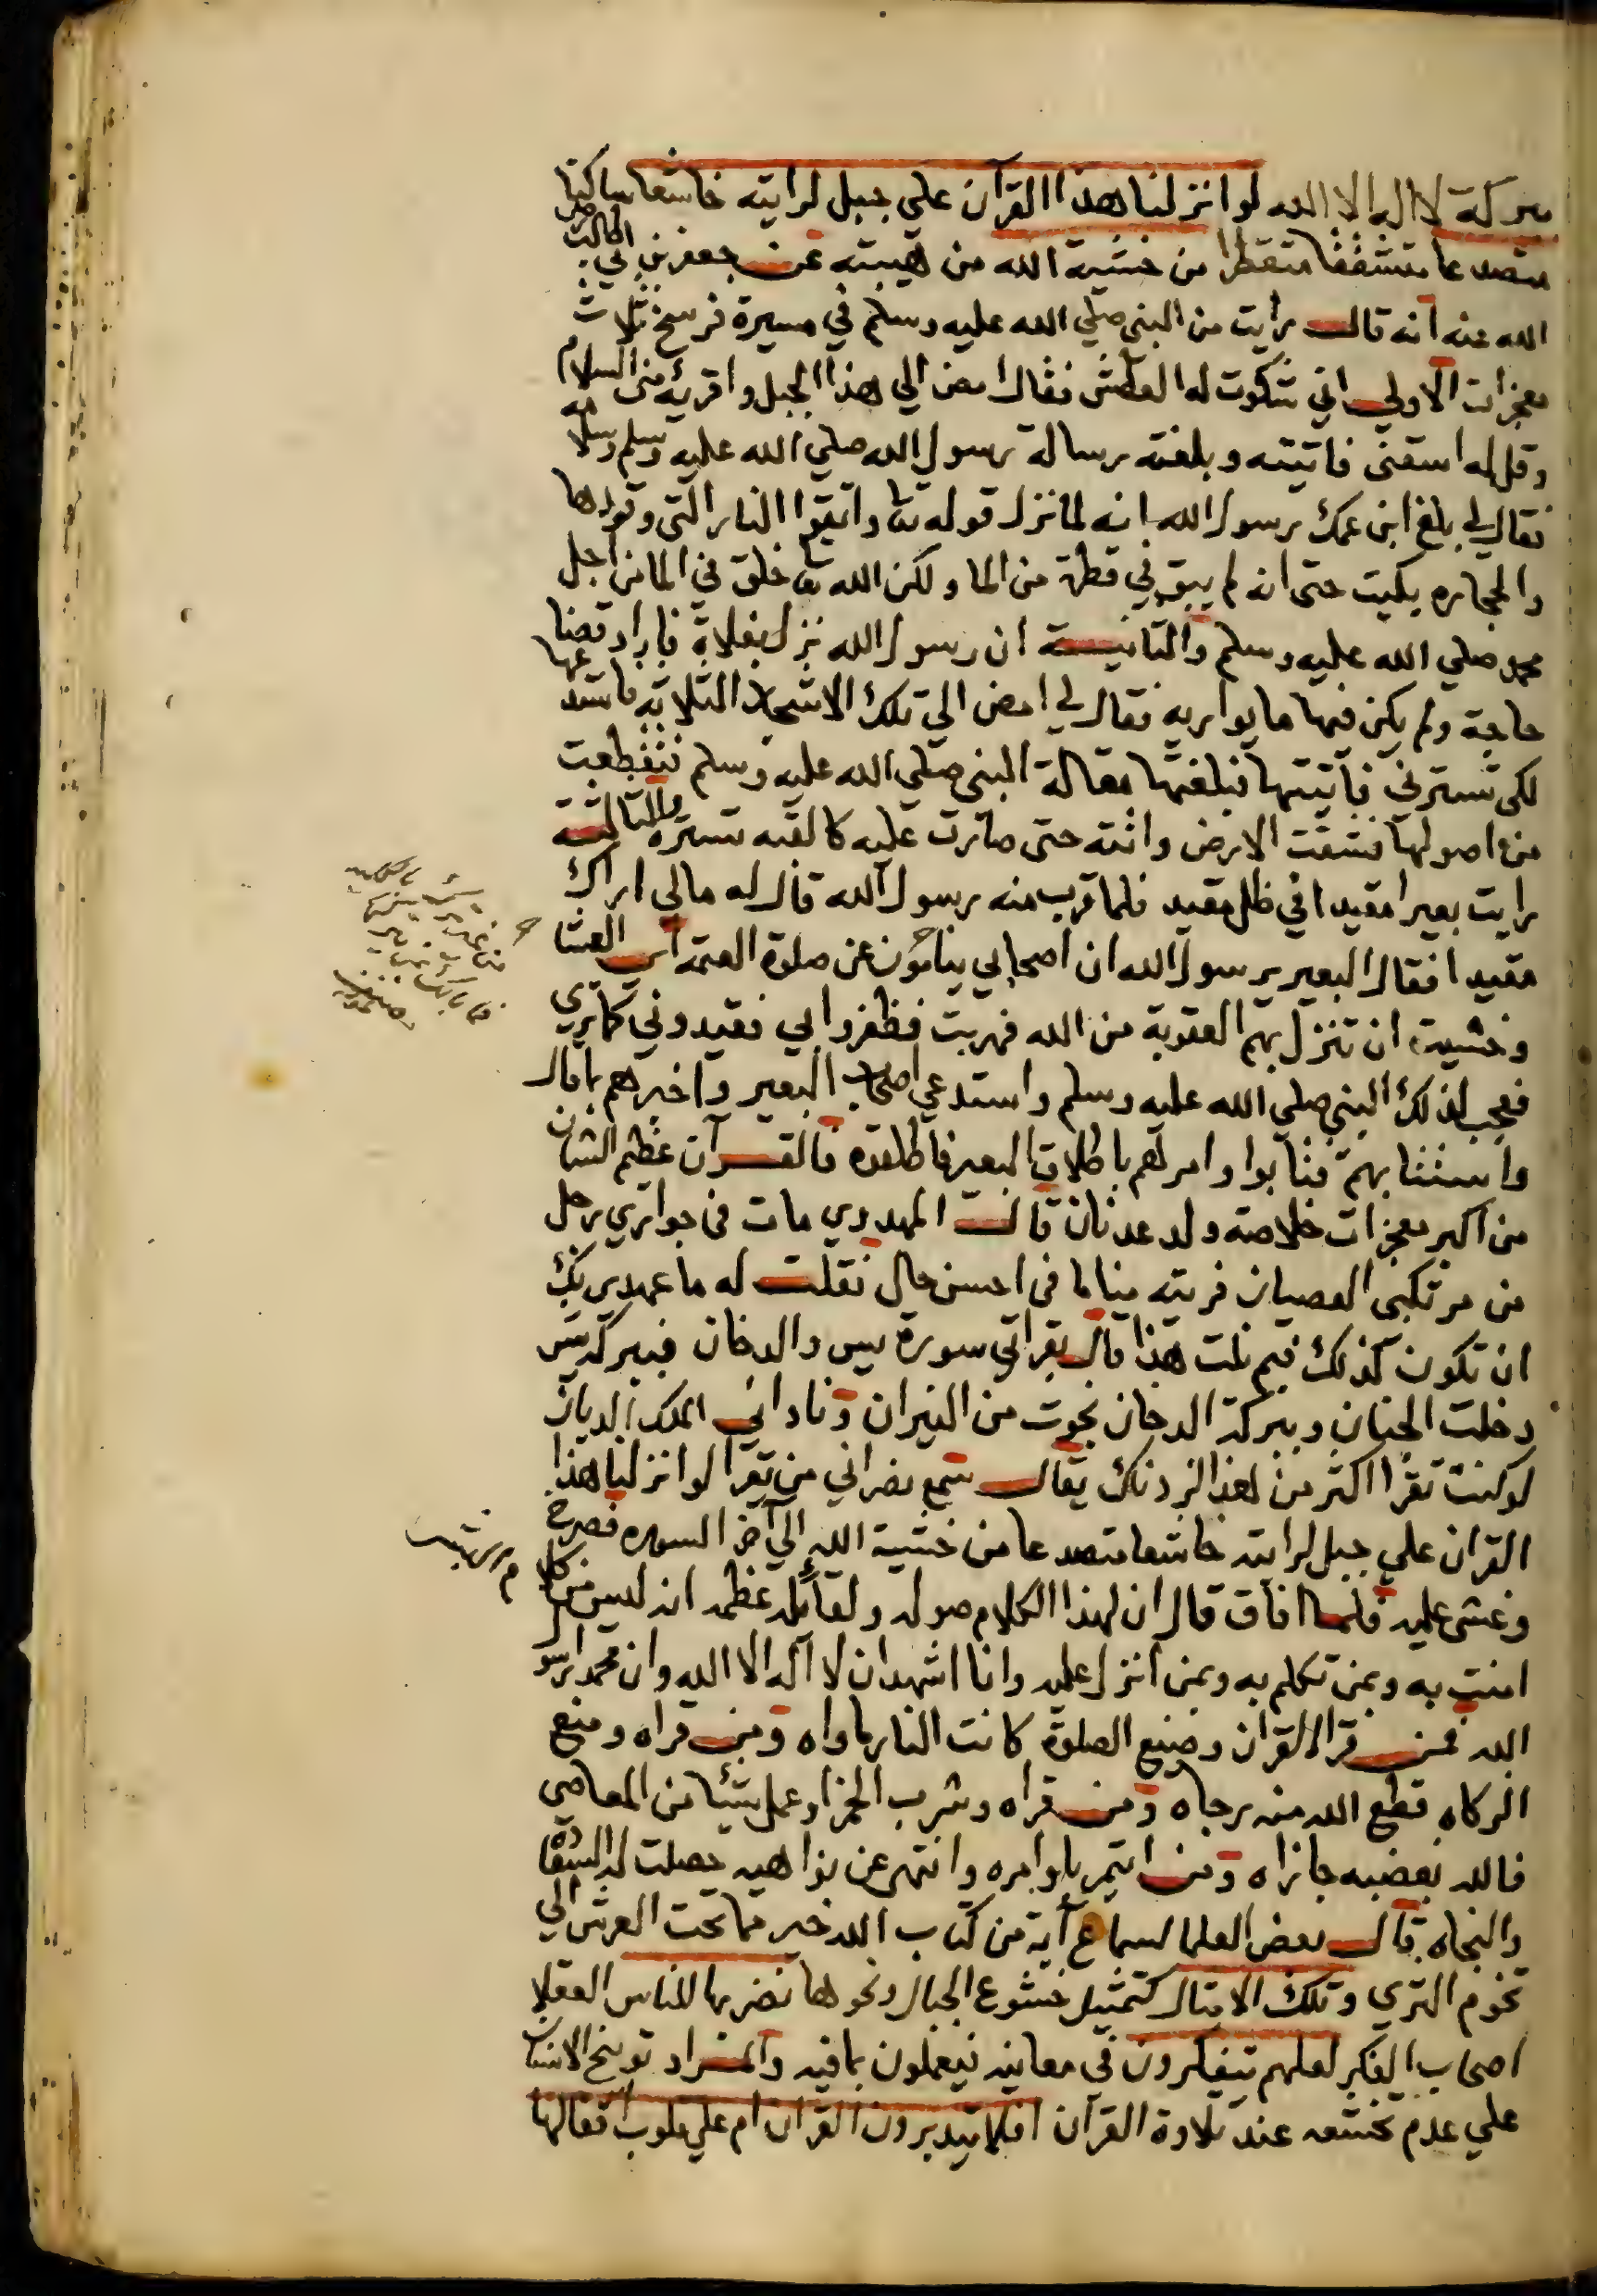 ببركة لا اله الا الله لو انزلنا هذا القرآن علي جبل لرايته خاشعا ساكنا
متصدعا متشققا متقطرا من خشية الله من هيبته عن جعفر بن ابي طالب رضي
الله عنه انه قال رأيت من النبي صلي الله عليه وسلم في مسيرة فرسخ ثلاث
معجزات الاولي اني شكوت له العطش فقال امض الي هذا الجبل واقريه مني السلام
وقل له اسقني فاتيته وبلغته رسالة رسول الله صلي الله عليه وسلم وسلامه
فقال لي بلغ ابن عمك رسول الله انه لما نزل قوله تعا واتقوا النار التي وقودها
والحجاره بكيت حتي انه لم يبق في قطرة من الما ولكن الله تعا خلق في الما من اجل
محمد صلي الله عليه وسلم والثانية ان رسول الله نزل بفلاة فاراد قضا
حاجة ولم يكن فيها ما يواريه فقال لي امض الي تلك الاشجار الثلاثه فاستدعها
لكي تسترني فأتيتها فبلغتها مقالة النبي صلي الله عليه وسلم فتقطعت
من اصولها فشقت الارض واتته حتي صارت عليه كالقبه تستره والثالثة
رايت بعيرا مقيدا في ظل مقيد فلما قرب منه رسول الله قال له مالي اراك
مقيدا فقال البعير يرسول الله ان اصحابي ينامون عن صلوة العتمه اي العشا
وخشية ان تنزل بهم العقوبة من الله فهربت فظفروا بي فقيدوني كما تري
فعجب لذلك النبي صلي الله عليه وسلم واستدعي اصحاب البعير واخبرهم بما قال
واستتابهم فتابوا وامرهم باطلاق البعير فاطلقوه فالقرآن عظيم الشان
من اكبر معجزات خلاصة ولد عدنان قالت المهدوي مات في جواري رجل
من مرتكبي العصيان فريته مناما في احسن حال فقلت له ما عهدي بك
ان تكون كذلك فبم نلت هذا قال بقراتي سورة يس والدخان فببركة يس
دخلت الجنان وببركة الدخان نجوت من النيران وناداني الملك الديان
لو كنت تقرا اكثر من هذا لزدناك يقال سمع نصراني من يقرا لو انزلنا هذا
القران علي جبل لرايته خاشعا متصدعا من خشية الله الي آخر السوره فصرخ
وغشي عليه فلما افاق قال ان لهذا الكلام صوله ولقائله عظمه انه ليس من كلام
امنت به وبمن تكلم به وبمن انزل عليه وانا اشهد ان لا اله الا الله وان محمدا رسو
الله فمن قرا القران وضيع الصلوة كانت النار ماواه ومن قراه ومنع
الزكاه قطع الله منه رجاه ومن قراه وشرب الخمر او عمل شيئا من المعاصي
فالله بغضبه جازاه ومن ايتمر باوامره وانتهي عن نواهيه حصلت له السعادة
والنجاه قال بعض العلما لسماع آية من كتاب الله خير مما تحت العرش الي
تخوم الثري وتلك الامثال كتمثيل خشوع الجبال ونحوها نضربها للناس العقلا
اصحاب الفكر لعلهم يتفكرون في معانيه فيعملون بما فيه والمراد توبيخ الانسان
علي عدم تخشعه عند تلاوة القرآن افلا يتدبرون القران ام علي قلوب اقفالها